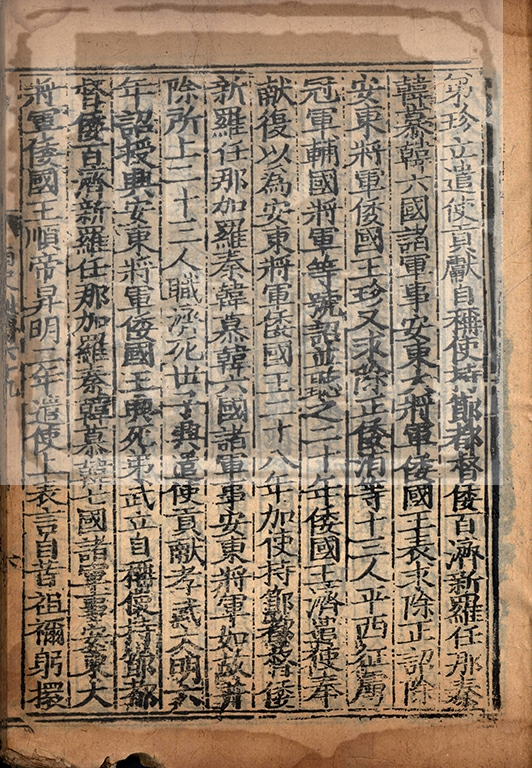 弟珍立遣使貢獻自稱使持節都督倭百濟新羅任那秦
韓慕韓六國諸軍事安東大將軍倭國王表求除正詔除
安東將軍倭國王珍又求除正倭洧等十三人平西征虜
冠軍輔國將軍等號詔並聽之二十年倭國王濟遣使奉
献復以為安東將軍倭國王二十八年加使持節都督倭
新羅任那加羅秦韓慕韓六國諸軍事安東將軍如故并
除所上二十三人職濟死世子興遣使貢献孝武大明六
年詔授興安東將軍倭國王興死弟武立自稱使持節都
督倭百濟新羅任那加羅秦韓慕韓七國諸軍事安東大
將軍倭國王順帝昇明二年遣使上表言自昔祖禰躬擐